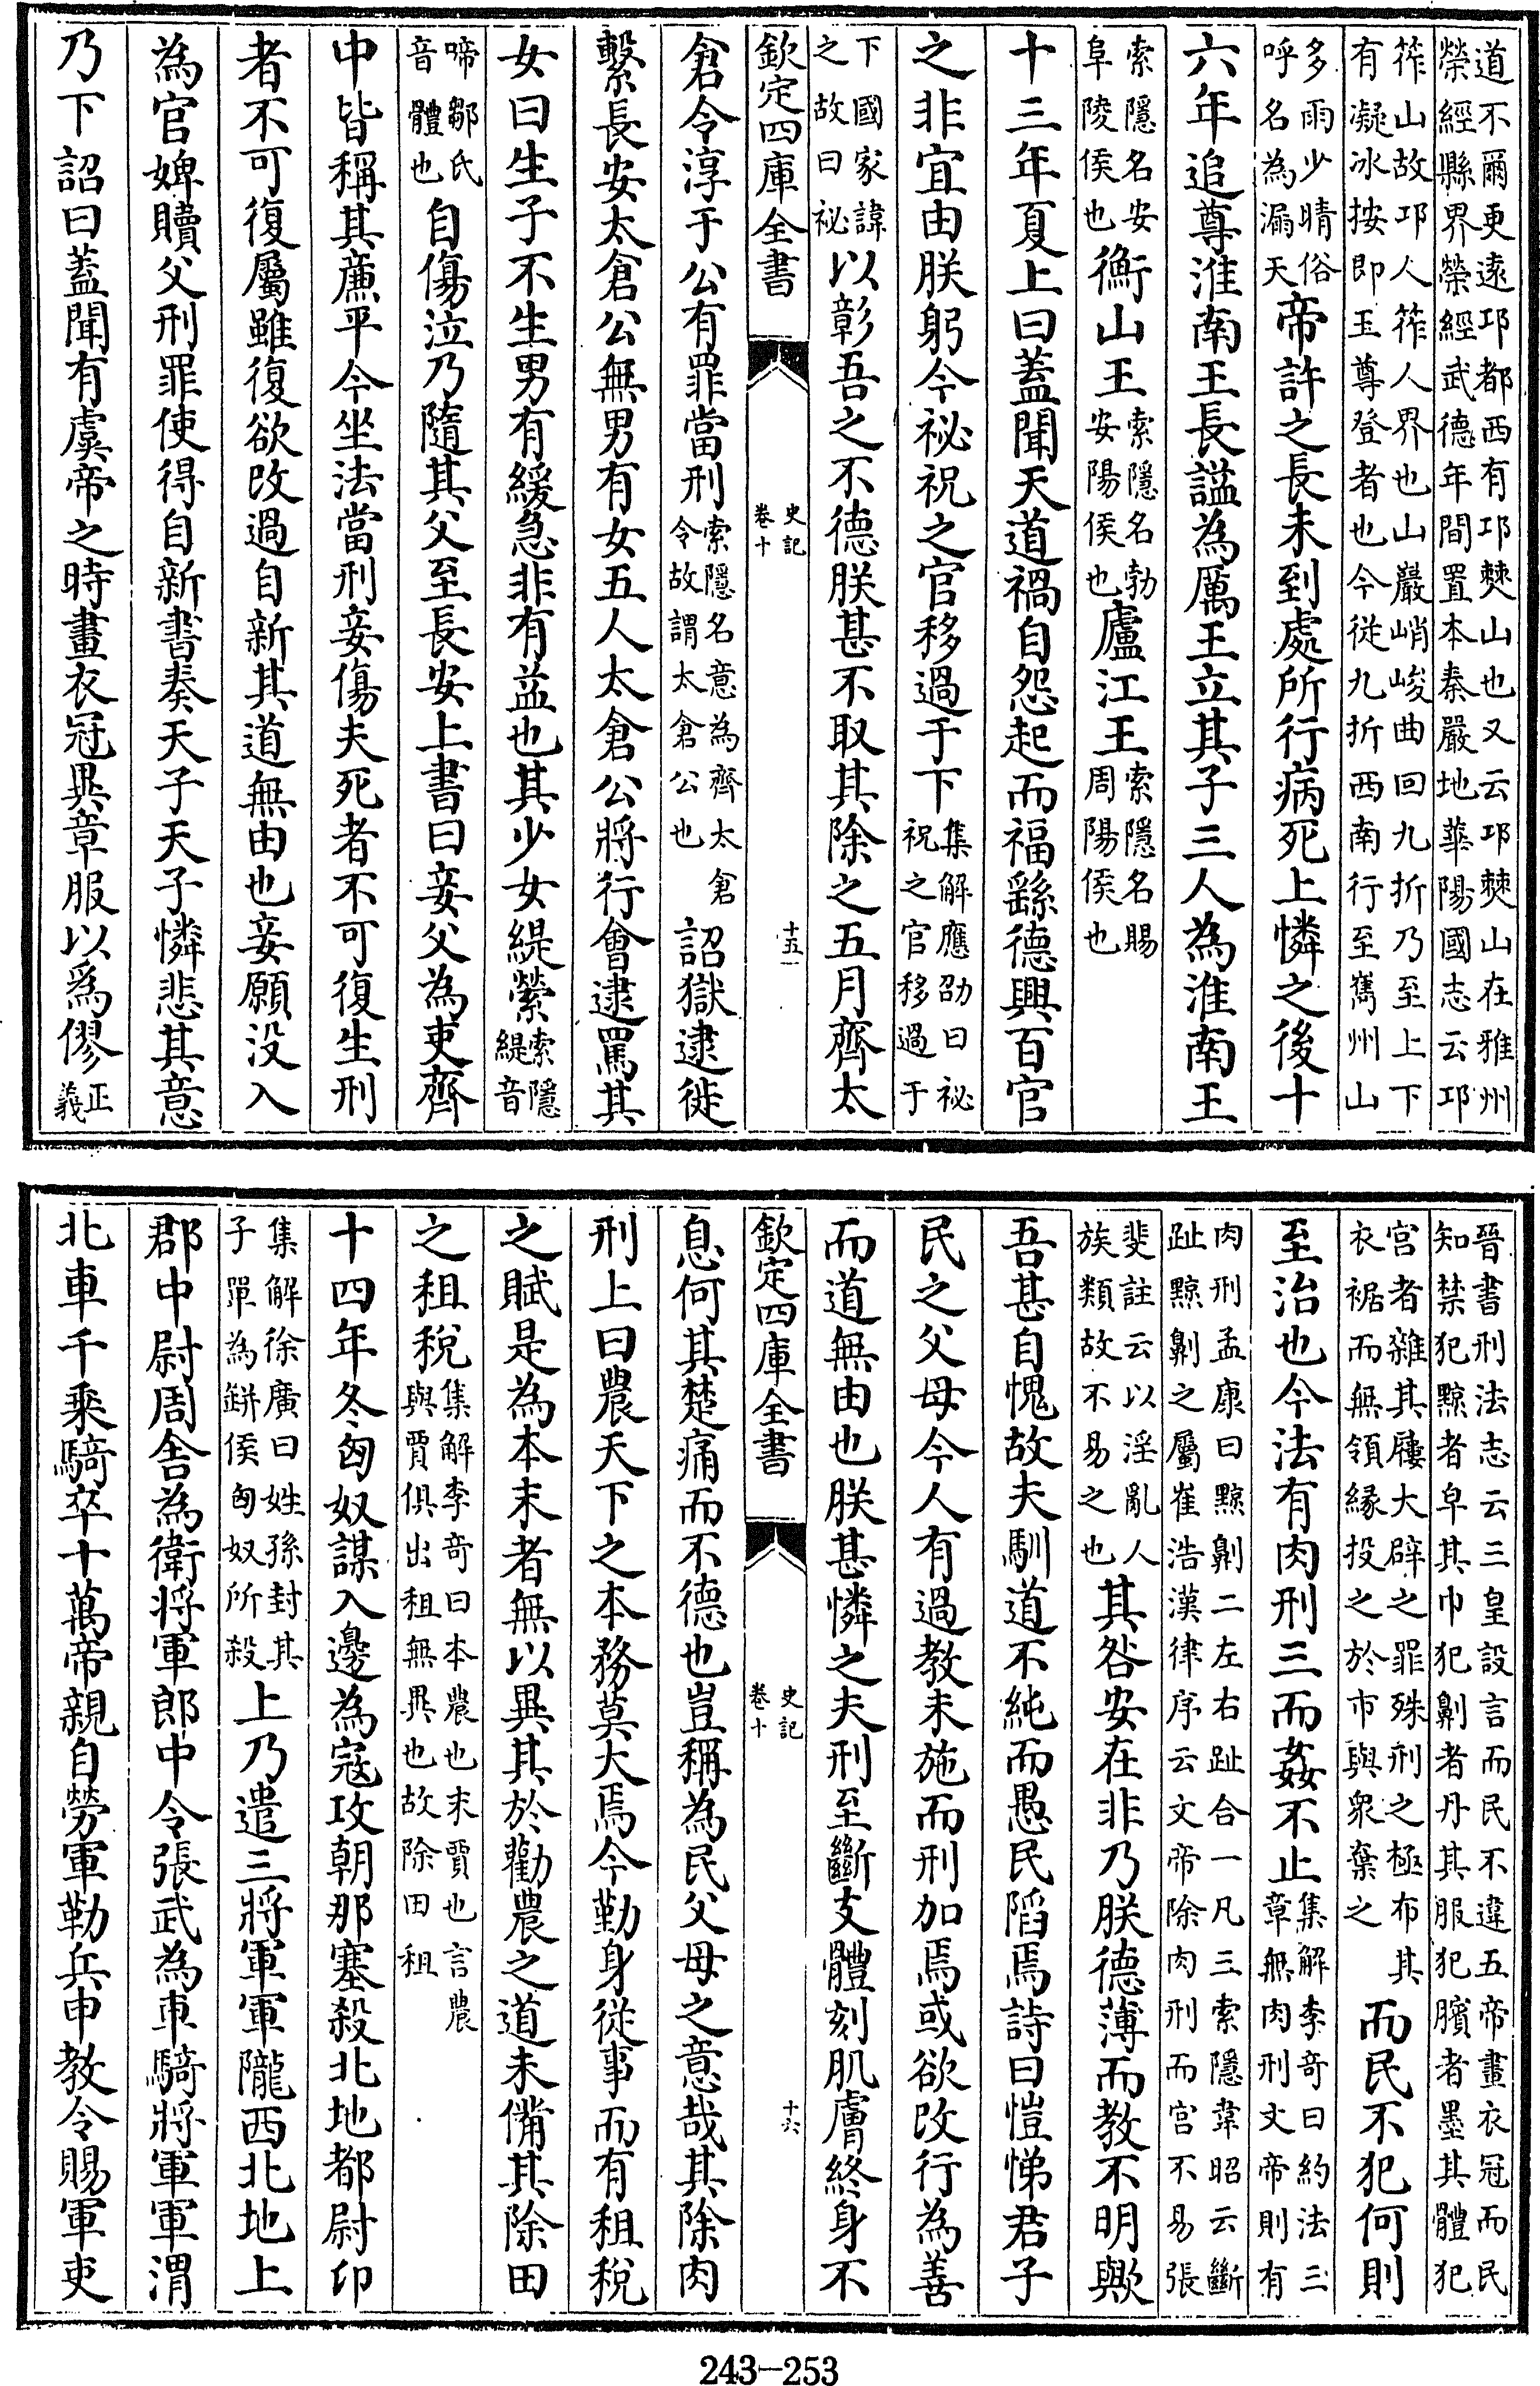 道不爾更遠邛都西有邛僰山也又云邛僰山在雅州
榮經縣界榮經武德年間置本秦嚴地華陽國志云邛
筰山故邛人筰人界也山巖峭峻曲回九折乃至上下
有凝冰按即王尊登者也今從九折西南行至嶲州山
多雨少晴俗呼名為漏天帝許之長未到處所行病死上憐之後十
六年追尊淮南王長謚為厲王立其子三人為淮南王
索隱名安阜陵侯也衡山王索隱名勃安陽侯也廬江王索隱名賜周陽侯也
十三年夏上曰蓋聞天道禍自怨起而福繇德興百官
之非宜由朕躬今祕祝之官移過于下集解應劭曰祕祝之官移過于
下國家諱之故曰祕以彰吾之不德朕甚不取其除之五月齊太
欽定四庫全書 史記卷十 十五
倉令淳于公有罪當刑索隱名意為齊太倉令故謂太倉公也詔獄逮徙
繫長安太倉公無男有女五人太倉公將行會逮罵其
女曰生子不生男有緩急非有益也其少女緹縈索隱緹音
啼鄒氏音體也自傷泣乃隨其父至長安上書曰妾父為吏齊
中皆稱其亷平今坐法當刑妾傷夫死者不可復生刑
者不可復屬雖復欲改過自新其道無由也妾願没入
為官婢贖父刑罪使得自新書奏天子天子憐悲其意
乃下詔曰蓋聞有虞帝之時畫衣冠異章服以為僇正義
晉書刑法志云三皇設言而民不違五帝畫衣冠而民
知禁犯黥者皁其巾犯劓者丹其服犯臏者墨其體犯
宫者雜其屨大辟之罪殊刑之極布其衣裾而無領緣投之於市與衆棄之而民不犯何則
至治也今法有肉刑三而姦不止集解李奇曰約法三章無肉刑文帝則有
肉刑孟康曰黥劓二左右趾合一凡三索隱韋昭云斷
趾黥劓之屬崔浩漢律序云文帝除肉刑而宫不易張
斐註云以淫亂人族類故不易之也其咎安在非乃朕德薄而教不明歟
吾甚自愧故夫馴道不純而愚民陷焉詩曰愷悌君子
民之父母今人有過教未施而刑加焉或欲改行為善
而道無由也朕甚憐之夫刑至斷支體刻肌膚終身不
欽定四庫全書 史記卷十 十六
息何其楚痛而不德也豈稱為民父母之意哉其除肉
刑上曰農天下之本務莫大焉今勤身從事而有租稅
之賦是為本末者無以異其於勸農之道未備其除田
之租稅集解李奇曰本農也末賈也言農與賈俱出租無異也故除田租
十四年冬匈奴謀入邊為寇攻朝那塞殺北地都尉卬
集解徐廣曰姓孫封其子單為缾侯匈奴所殺上乃遣三將軍軍隴西北地上
郡中尉周舍為衛將軍郎中令張武為車騎將軍軍渭
北車千乘騎卒十萬帝親自勞軍勒兵申教令賜軍吏
243-253